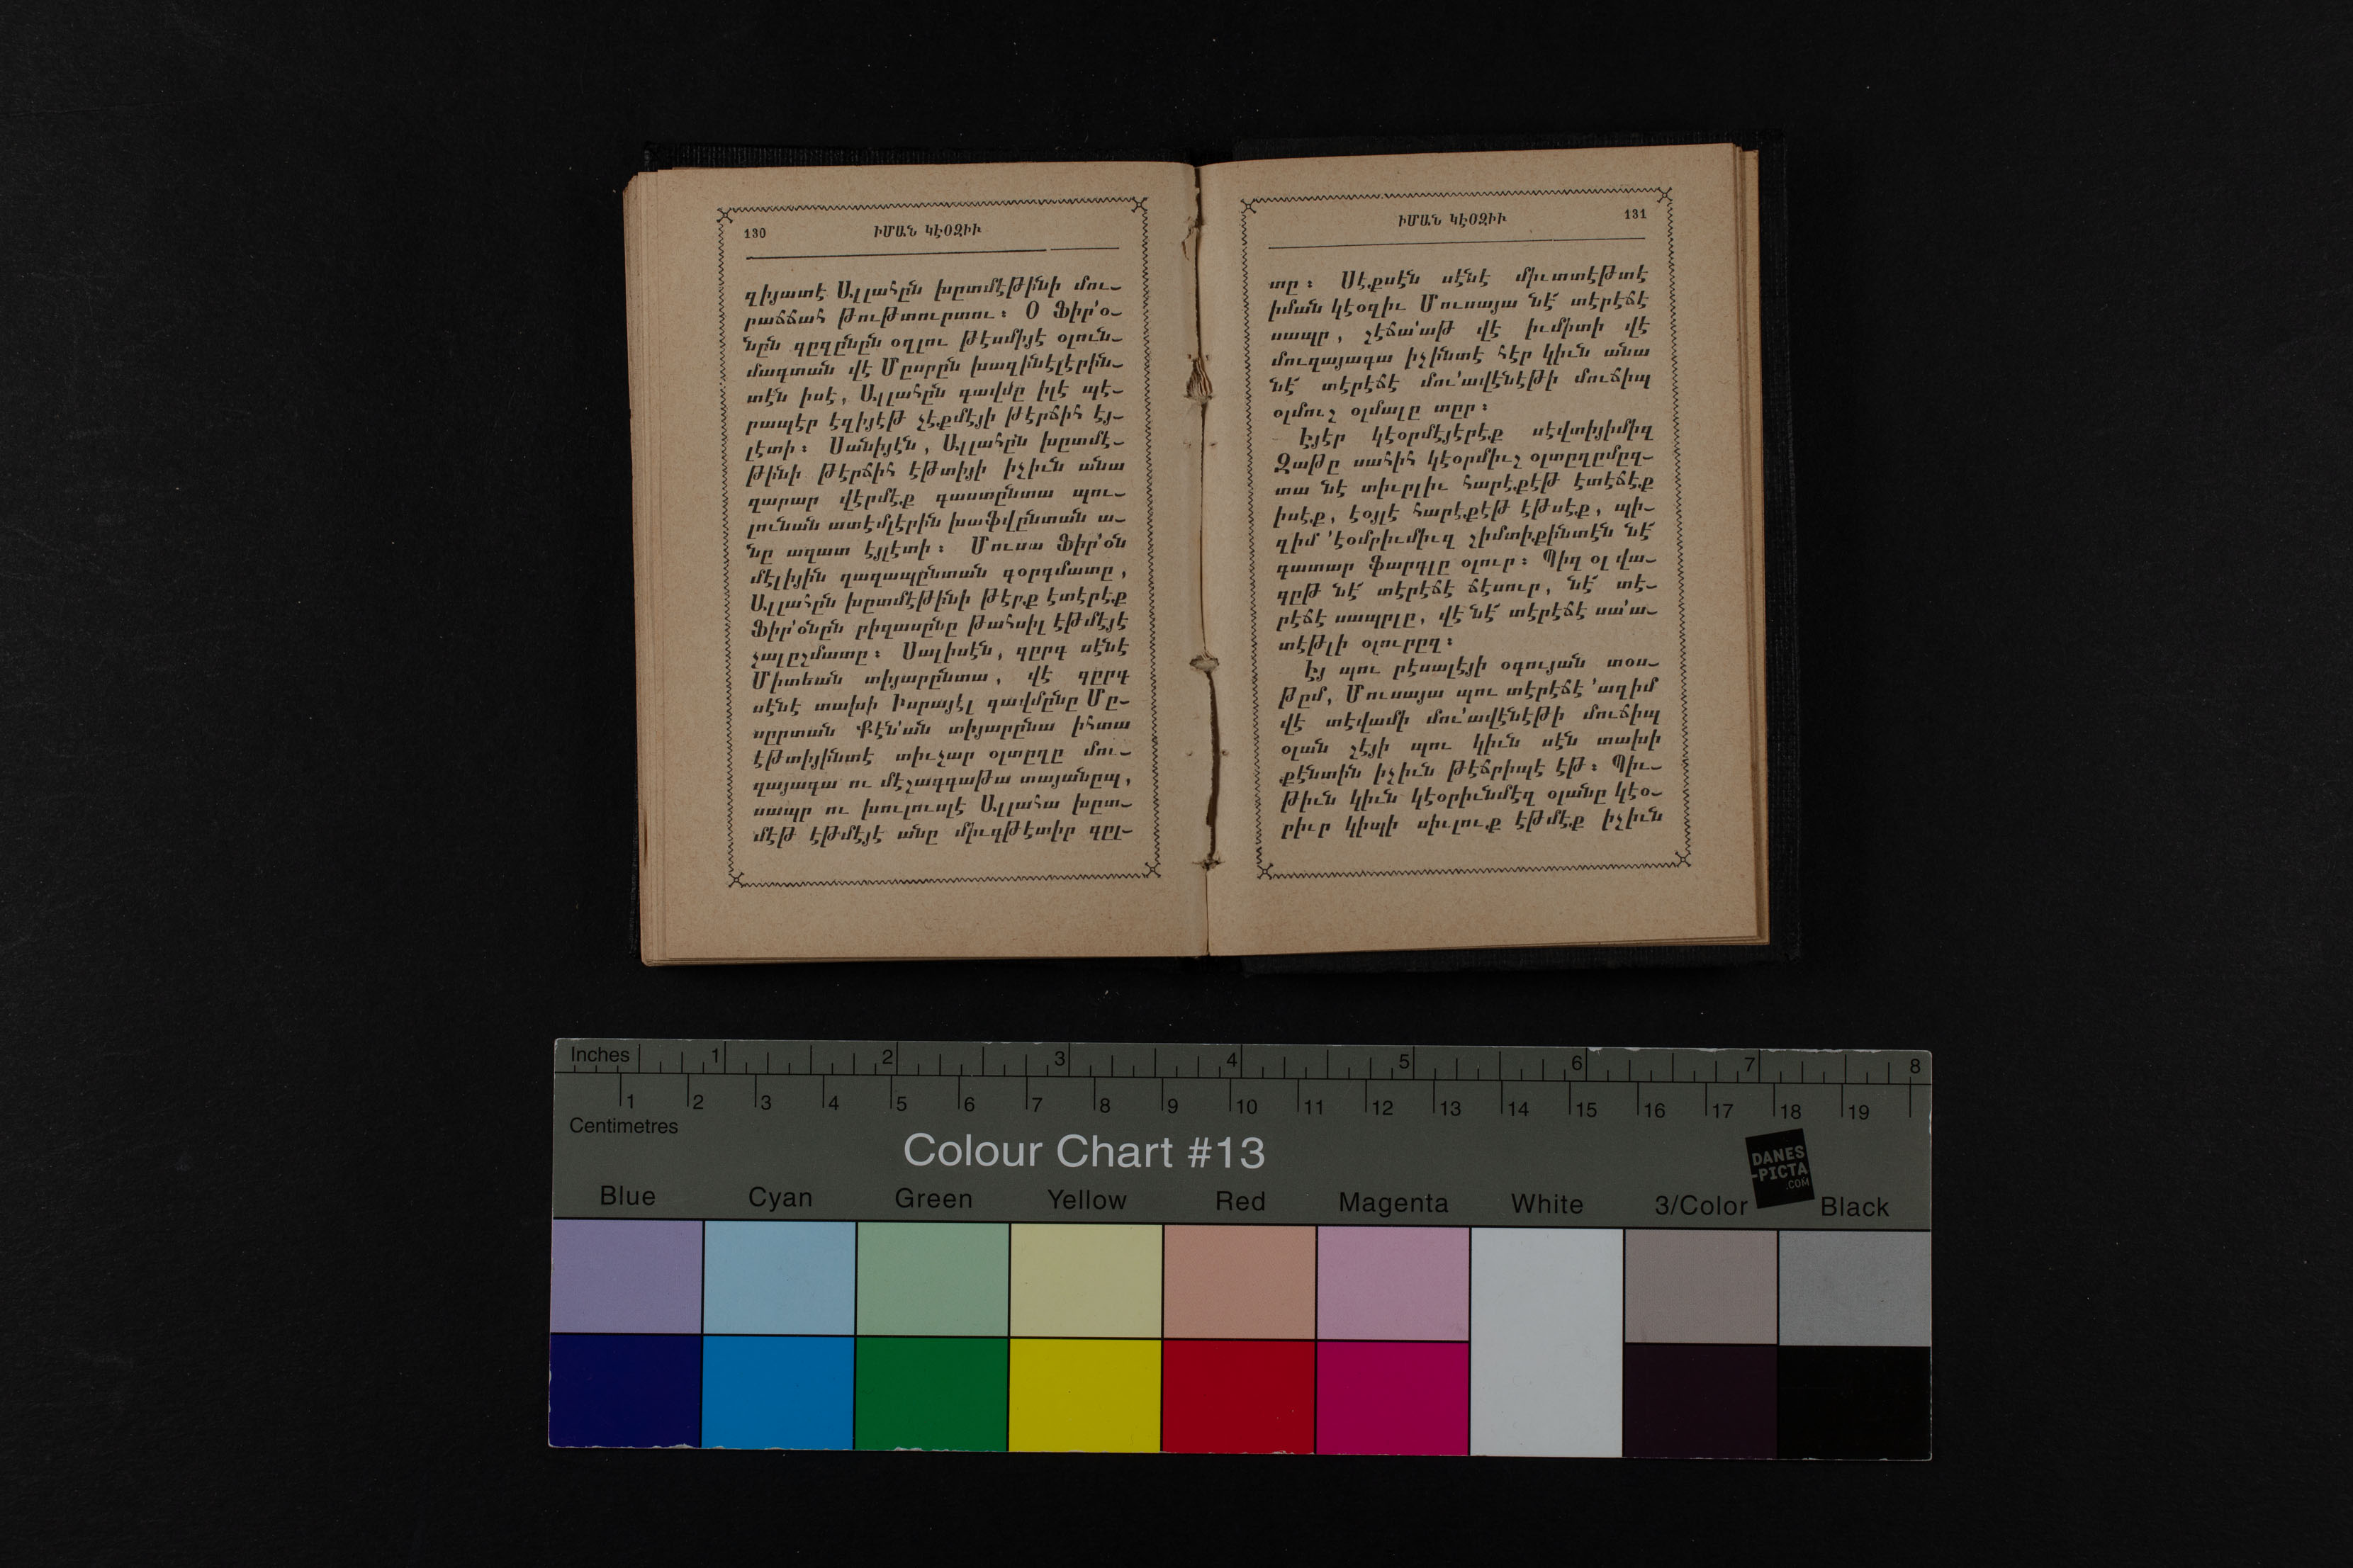 130
ԻՄԱՆ ԿԷՕԶԻՒ
զիյատէ Ալլահըն խըտմէթինի մու-
րաճճահ թութտուրտու։ Օ Ֆիր՚օ-
նըն գըզընըն օղլու թէսմիյէ օլուն-
մագտան վէ Մըսրըն խազինէլէրին-
տէն իսէ, Ալլահըն գավմը իլէ պէ-
րապէր էզիյէթ չէքմէյի թէրճիհ էյ-
լէտի։ Սանիյէն, Ալլահըն խըտմէ-
թինի թէրճիհ էթտիյի իչիւն անա
զարար վէրմէք գաստընտա պու-
լունան ատէմլէրին խաֆվընտան ա-
նը ազատ էյլէտի։ Մուսա Ֆիր՚օն
մէլիյին ղազապընտան գօրգմատը,
Ալլահըն խըտմէթինի թէրք էտէրէք
Ֆիր՚օնըն րիզասընը թահսիլ էթմէյէ
չալըշմատը։ Սալիսէն, գըրգ սէնէ
Միտեան տիյարընտա, վէ գըրգ
սէնէ տախի Իսրայէլ գավմընը Մը-
սըրտան Քէն՚ան տիյարընա իհտա
էթտիյինտէ տիւչար օլտըղը մու-
ղայագա ու մէշագգաթա տայանըպ,
սապր ու խուլուսլէ Ալլահա խըտ-
մէթ էթմէյէ անը միւգթէտիր գըլ-
131
ԻՄԱՆ ԿԷՕԶԻՒ
տը։ Սէքսէն սէնէ միւտտէթտէ
իման կէօզիւ Մուսայա նէ՛ տէրէճէ
սապր, շէճա՚աթ վէ իւմիտի վէ
մուղայագա իչինտէ հէր կիւն անա
նէ՛ տէրէճէ մու՚ավէնէթի մուճիպ
օլմուշ օլմալը տըր։
Էյէր կէօրմէյէրէք սէվտիյիմիզ
Զաթը սահիհ կէօրմիւշ օլտըղըմըզ-
տա նէ տիւրլիւ հարէքէթ էտէճէք
իսէք, էօյլէ հարէքէթ էթսէք, պի-
զիմ ՚էօմրիւմիւզ շիմտիքինտէն նէ՛
գատար ֆարգլը օլուր։ Պիզ օլ վա-
գըթ նէ՛ տէրէճէ ճէսուր, նէ՛ տէ-
րէճէ սապրլը, վէ նէ՛ տէրէճէ սա՚ա-
տէթլի օլուրըզ։
Էյ պու րէսալէյի օգույան տօս-
թըմ, Մուսայա պու տէրէճէ ՚ազիմ
վէ տէվամի մու՚ավէնէթի մուճիպ
օլան շէյի պու կիւն սէն տախի
քէնտին իչիւն թէճրիպէ էթ։ Պիւ-
թիւն կիւն կէօրիւնմէզ օլանը կէօ-
րիւր կիպի սիւլուք էթմէք իչիւն
Inches
1 2 3 4 5 6 7 8
1 2 3 4 5 6 7 8 9 10 11 12 13 14 15 16 17 18 19
Centimetres
Colour Chart #13
DANES
-PICTA
.COM
Blue Cyan Green Yellow Red Magenta White 3/Color Black